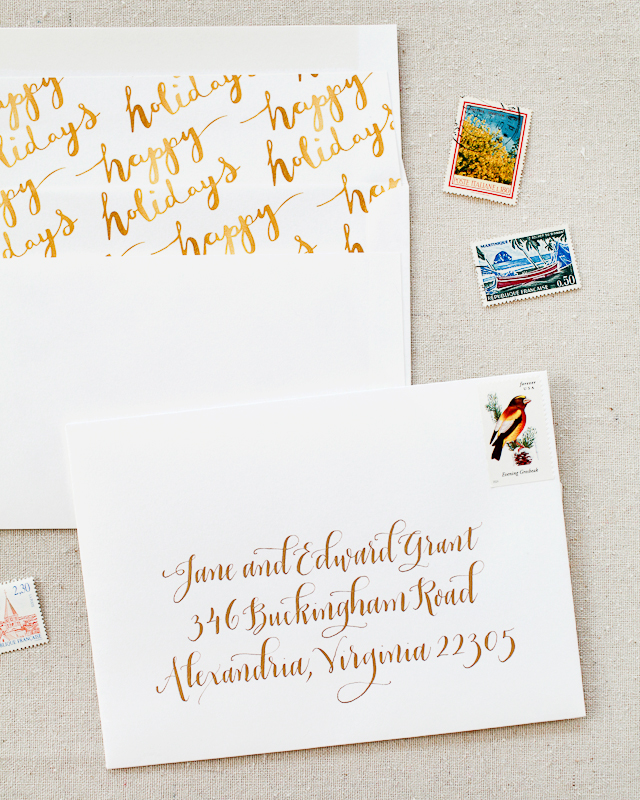 happy holidays happy
holidays happy holidays
happy holidays happy
days happy h
POSTE ITALIANE L.180
MARTINIQUE
REPUBLIQUE FRANCAISE 0,50
forever
USA
Evening Grosbeak
Jane and Edward Grant
346 Buckingham Road
Alexandria, Virginia 22305
2,30